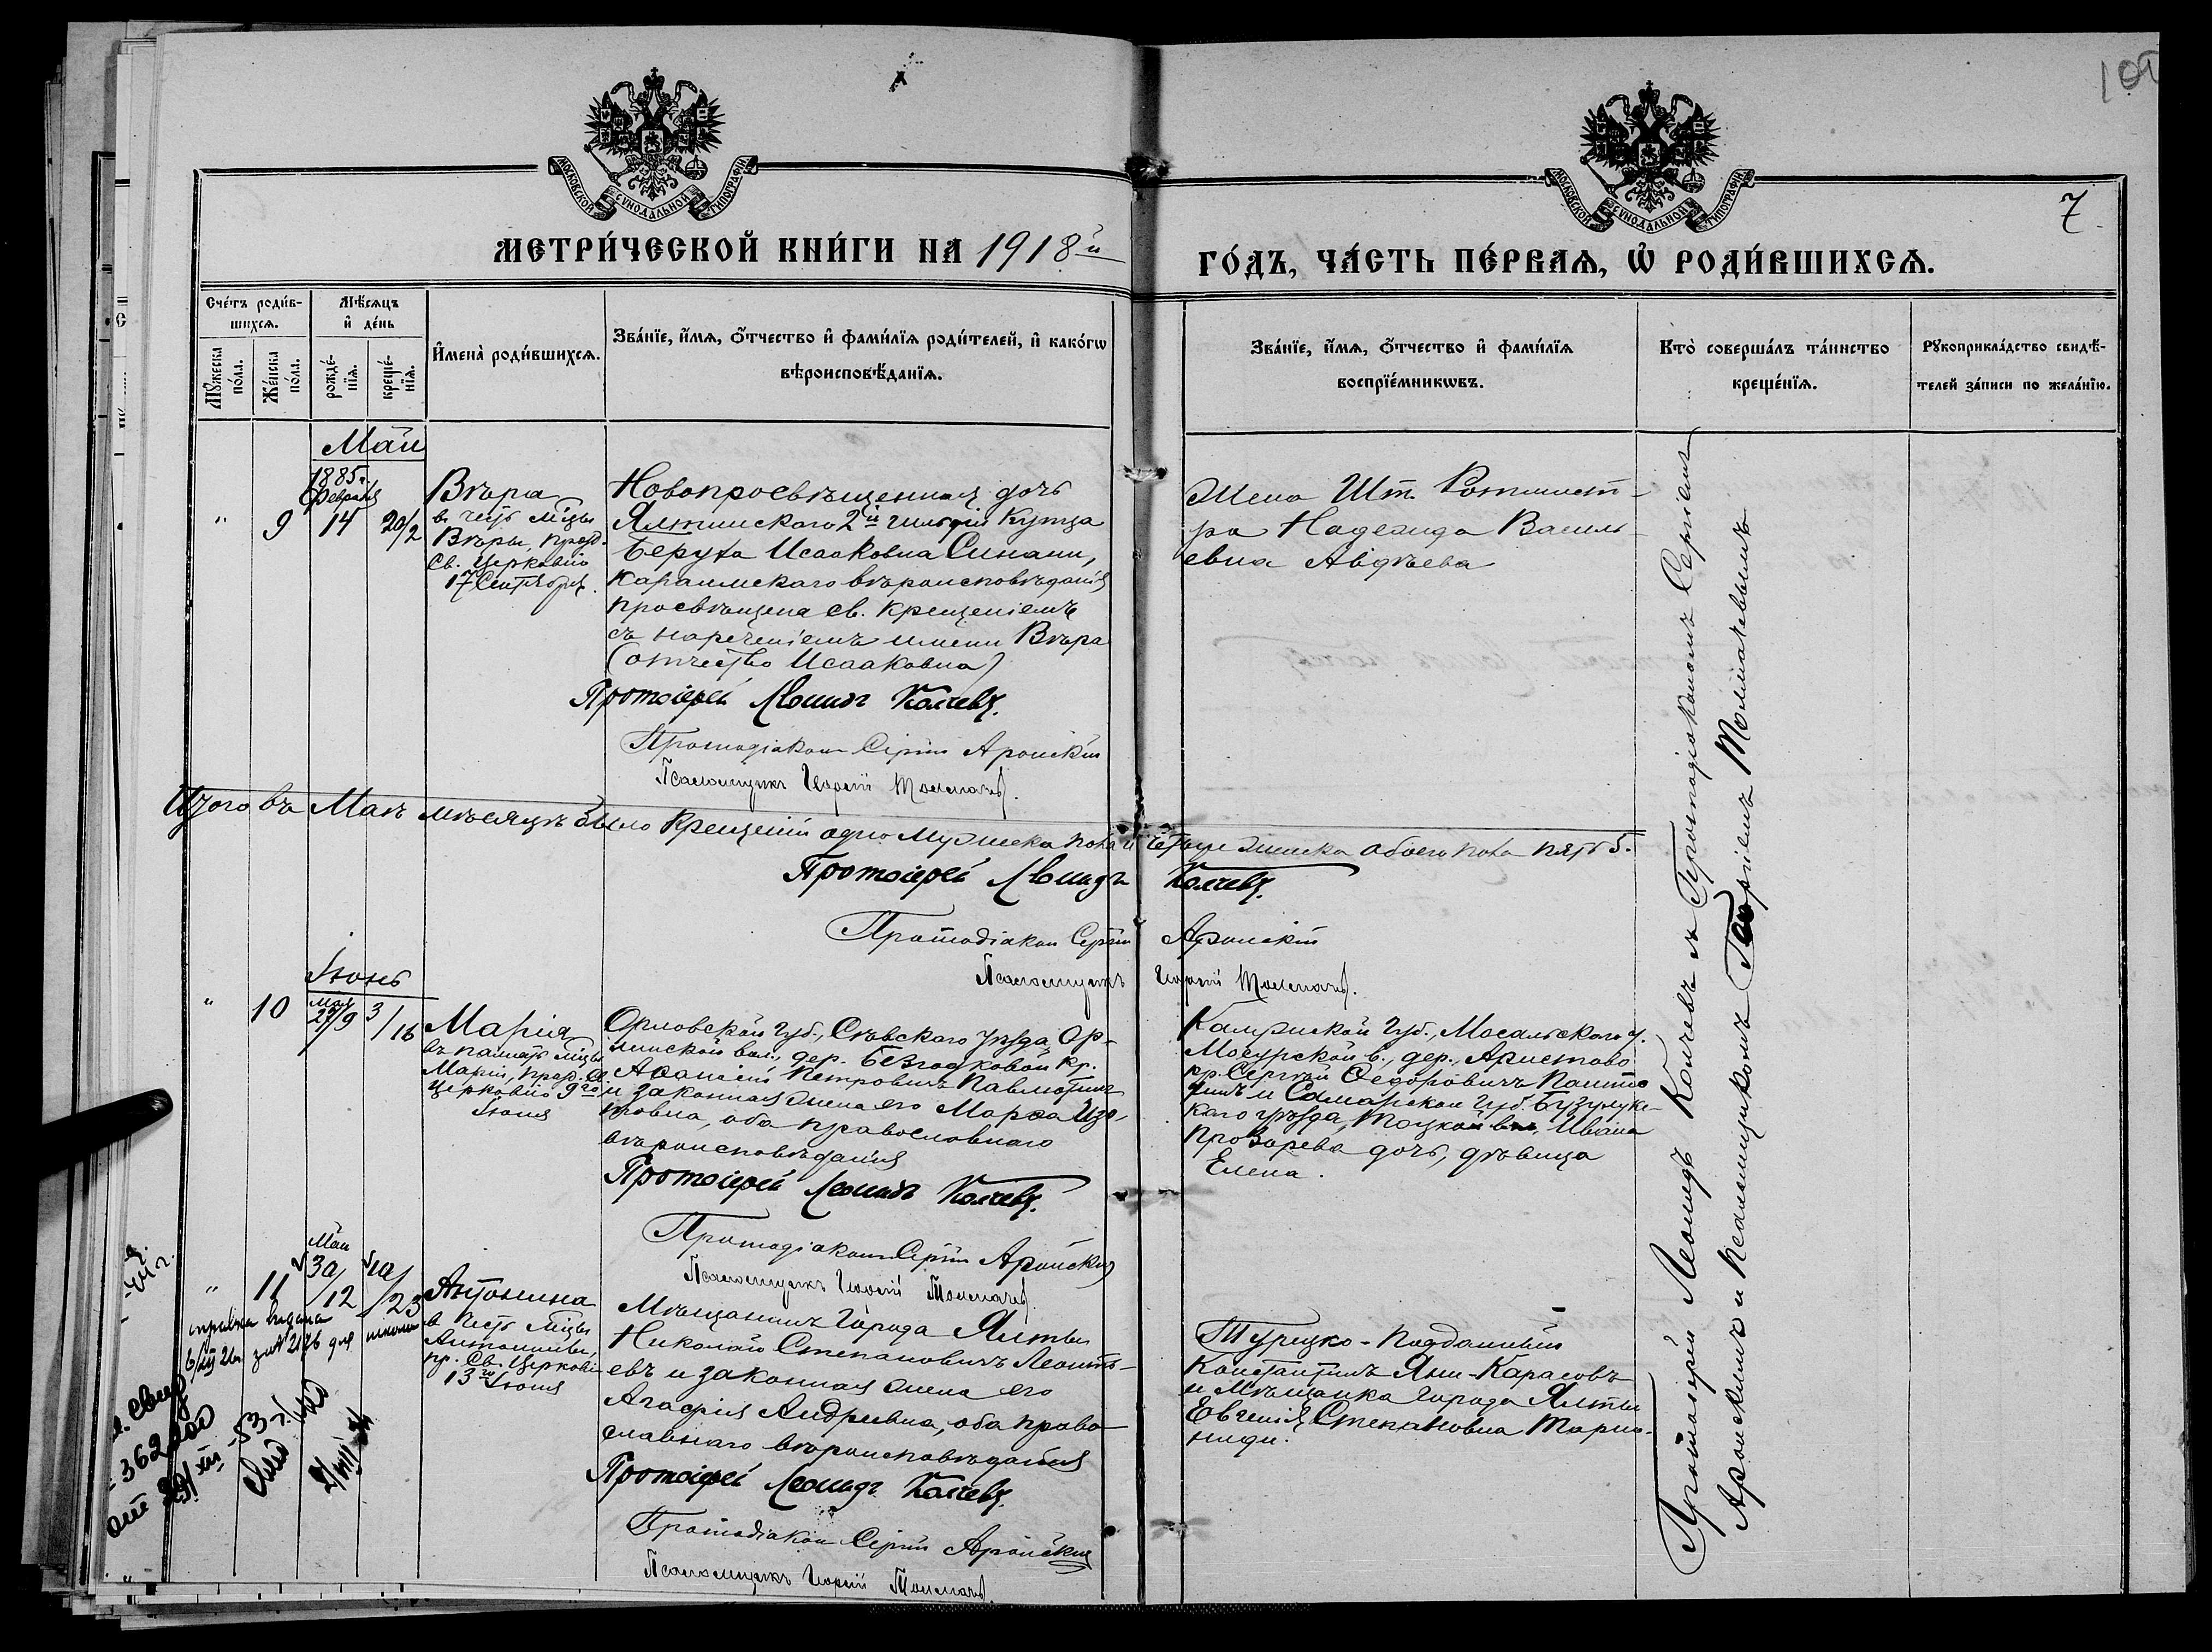 109
7
МОСКОВСКОЙ СѴНОДАЛЬНОЙ ТИПОГРАФІИ
МОСКОВСКОЙ СѴНОДАЛЬНОЙ ТИПОГРАФІИ
МЕТРИ́ЧЕСКОЙ КНИ́ГИ НА 1918й
ГО́ДЪ, ЧА́СТЬ ПЕ́РВАѦ, Ѡ҆ РОДИ́ВШИХСѦ.
Сче́тъ роди́в-
шихсѧ.
Мѣ́сѧцъ
и҆ де́нь
Мꙋ́жеска
по́ла.
Же́нска
по́ла.
рожде́-
нїѧ.
креще́-
нїѧ.
И҆мена̀ роди́вшихсѧ.
Зва́нїе, и҆́мѧ, ѻ҆́тчество и҆ фами́лїѧ роди́телей, и҆ како́гѡ
вѣроисповѣ́данїѧ.
Зва́нїе, и҆́мѧ, ѻ҆́тчество и҆ фами́лїѧ
воспрїе́мникѡвъ.
Кто̀ соверша́лъ та́инство
креще́нїѧ.
Рꙋкоприкла́дство свидѣ́-
телей за́писи по жела́нїю.
Май
1885 г.
Февраля
" 9 14 20/2
Вѣра
в честь м-цы
Вѣры, празд.
Св. Церковію
17 Сентября.
Новопросвѣщенная дочь
Ялтинскаго 2й гильдіи Купца
Беруха Исааковна Синани,
караимскаго вѣроисповѣданія
просвѣщена св. крещеніемъ
съ нареченіемъ имени Вѣра
(отчество Исааковна)
Протоіерей Леонидъ Колчевъ.
Протодіаконъ Сергій Аронскій
Псаломщикъ Георгій Толмачев.
Жена Шт. Ротмист-
ра Надежда Василь-
евна Авдѣева
Итого въ Маѣ мѣсяцѣ было крещеній одно мужеска пола и четыре женска обоего пола пять 5.
Протоіерей Леонидъ Колчевъ.
Протодіакон Сергій Аронскій
Псаломщикъ Георгій Толмачев.
Іюнь
" 10 май 27/9 3/16
Марія
въ память м-цы
Маріи, празд. Св.
Церковію 9го
Іюня
Орловской Губ., Сѣвского уѣзда, Ор-
линской вол., дер. Безгодковой кр.
Аѳанасій Петровичъ Павлютинъ
и законная жена его Марѳа Изо-
товна, оба православнаго
вѣроисповѣданія
Протоіерей Леонидъ Колчевъ.
Протодіаконъ Сергій Аронскій
Псаломщикъ Георгій Толмачев.
Калужской Губ., Мосальскаго у.
Мосурской в., дер., Аристово
кр. Сергѣй Ѳедоровичъ
и Самарской Губ. Бузулукс-
каго уѣзда, Тоцкой вол, Ивана
Прозорева дочь, дѣвица
Елена.
" 11 Май 30/12 10/23
Антонина
в честь м-цы
Антонины,
пр. Св. Церковію
13го Іюня
Мѣщанинъ Города Ялты
Николай Степановичъ Леонть-
евъ и законная жена его
Агафія Андреевна, оба право-
славнаго вѣроисповѣданія
Протоіерей Леонидъ Колчевъ.
Протодіакон Сергій Аронскій
Псаломщикъ Георгій Толмачев.
Турецко-подданный
Константинъ Яни-Карасовъ
и Мѣщанка Города Ялты
Евгенія Степановна Марио-
ниди.
справка выдана
для школы
Протоіерей Леонидъ Колчевъ съ Протодіакономъ Сергіемъ
Аронскимъ и Псаломщикомъ Георгіемъ Толмачевымъ